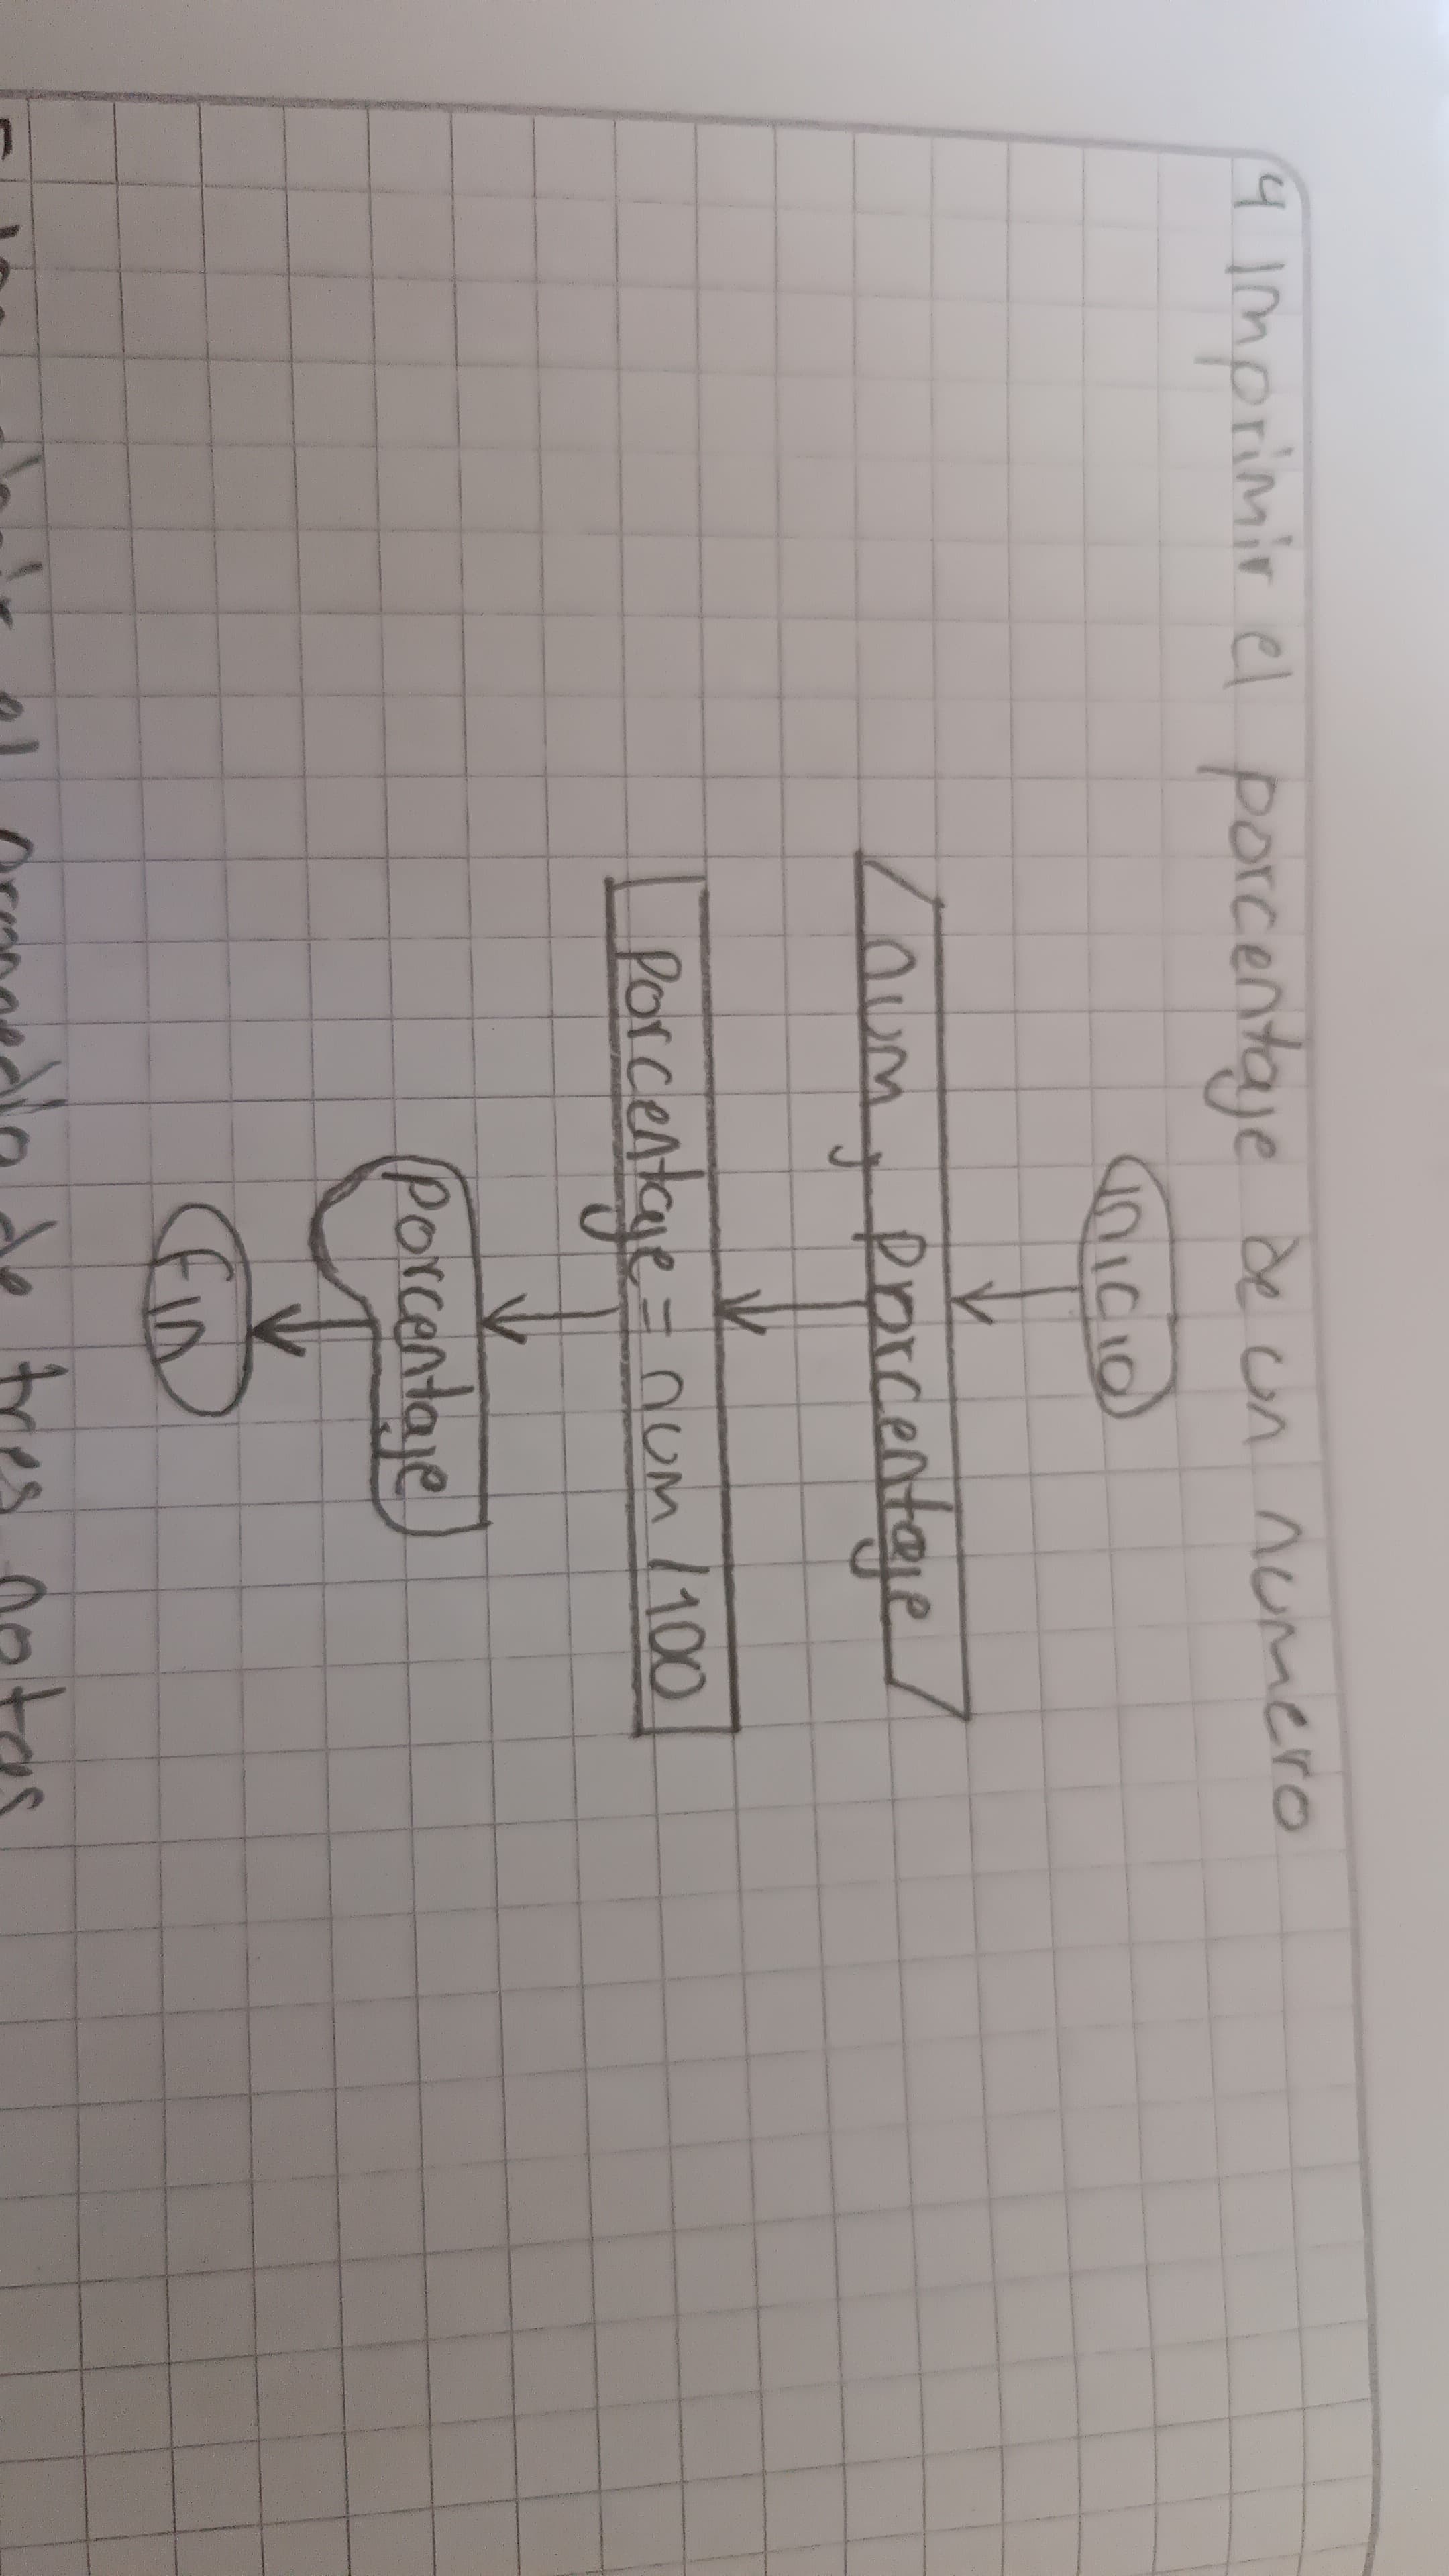 4 Imprimir el porcentaje de un numero
Inicio
num, porcentaje
porcentaje = num / 100
porcentaje
Fin
el promedio de tres notas